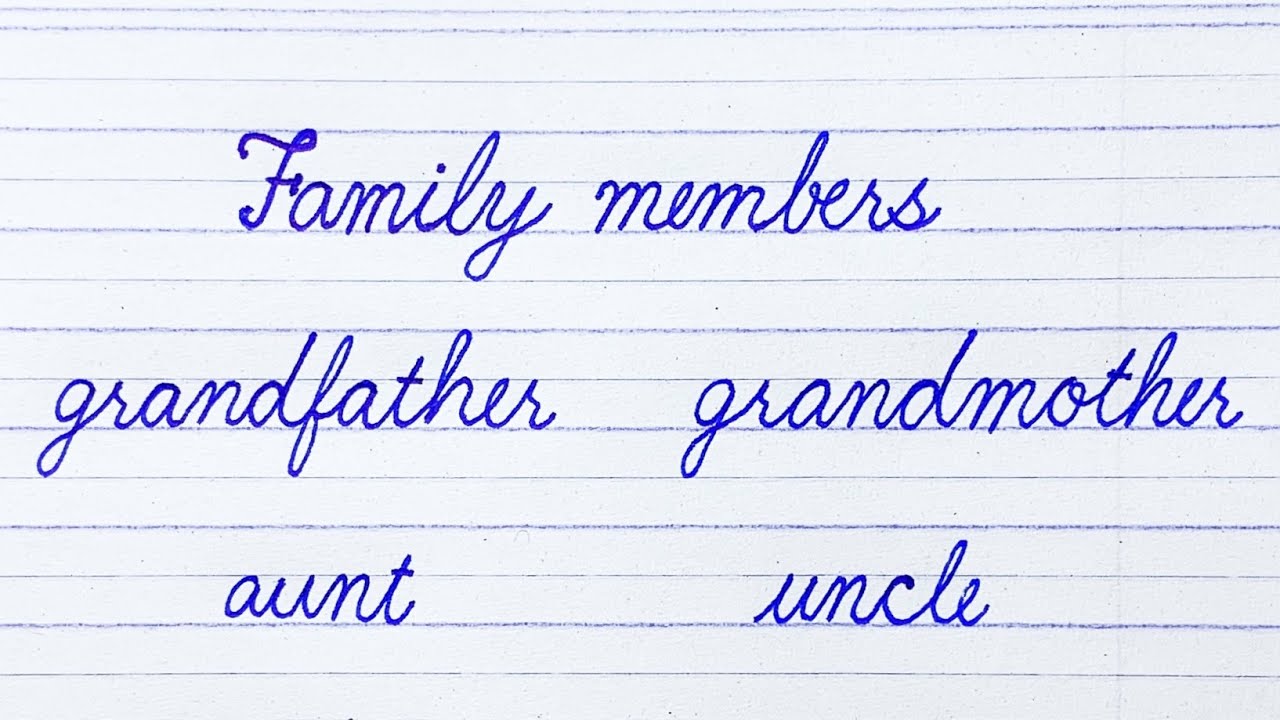 Family members
grandfather grandmother
aunt uncle